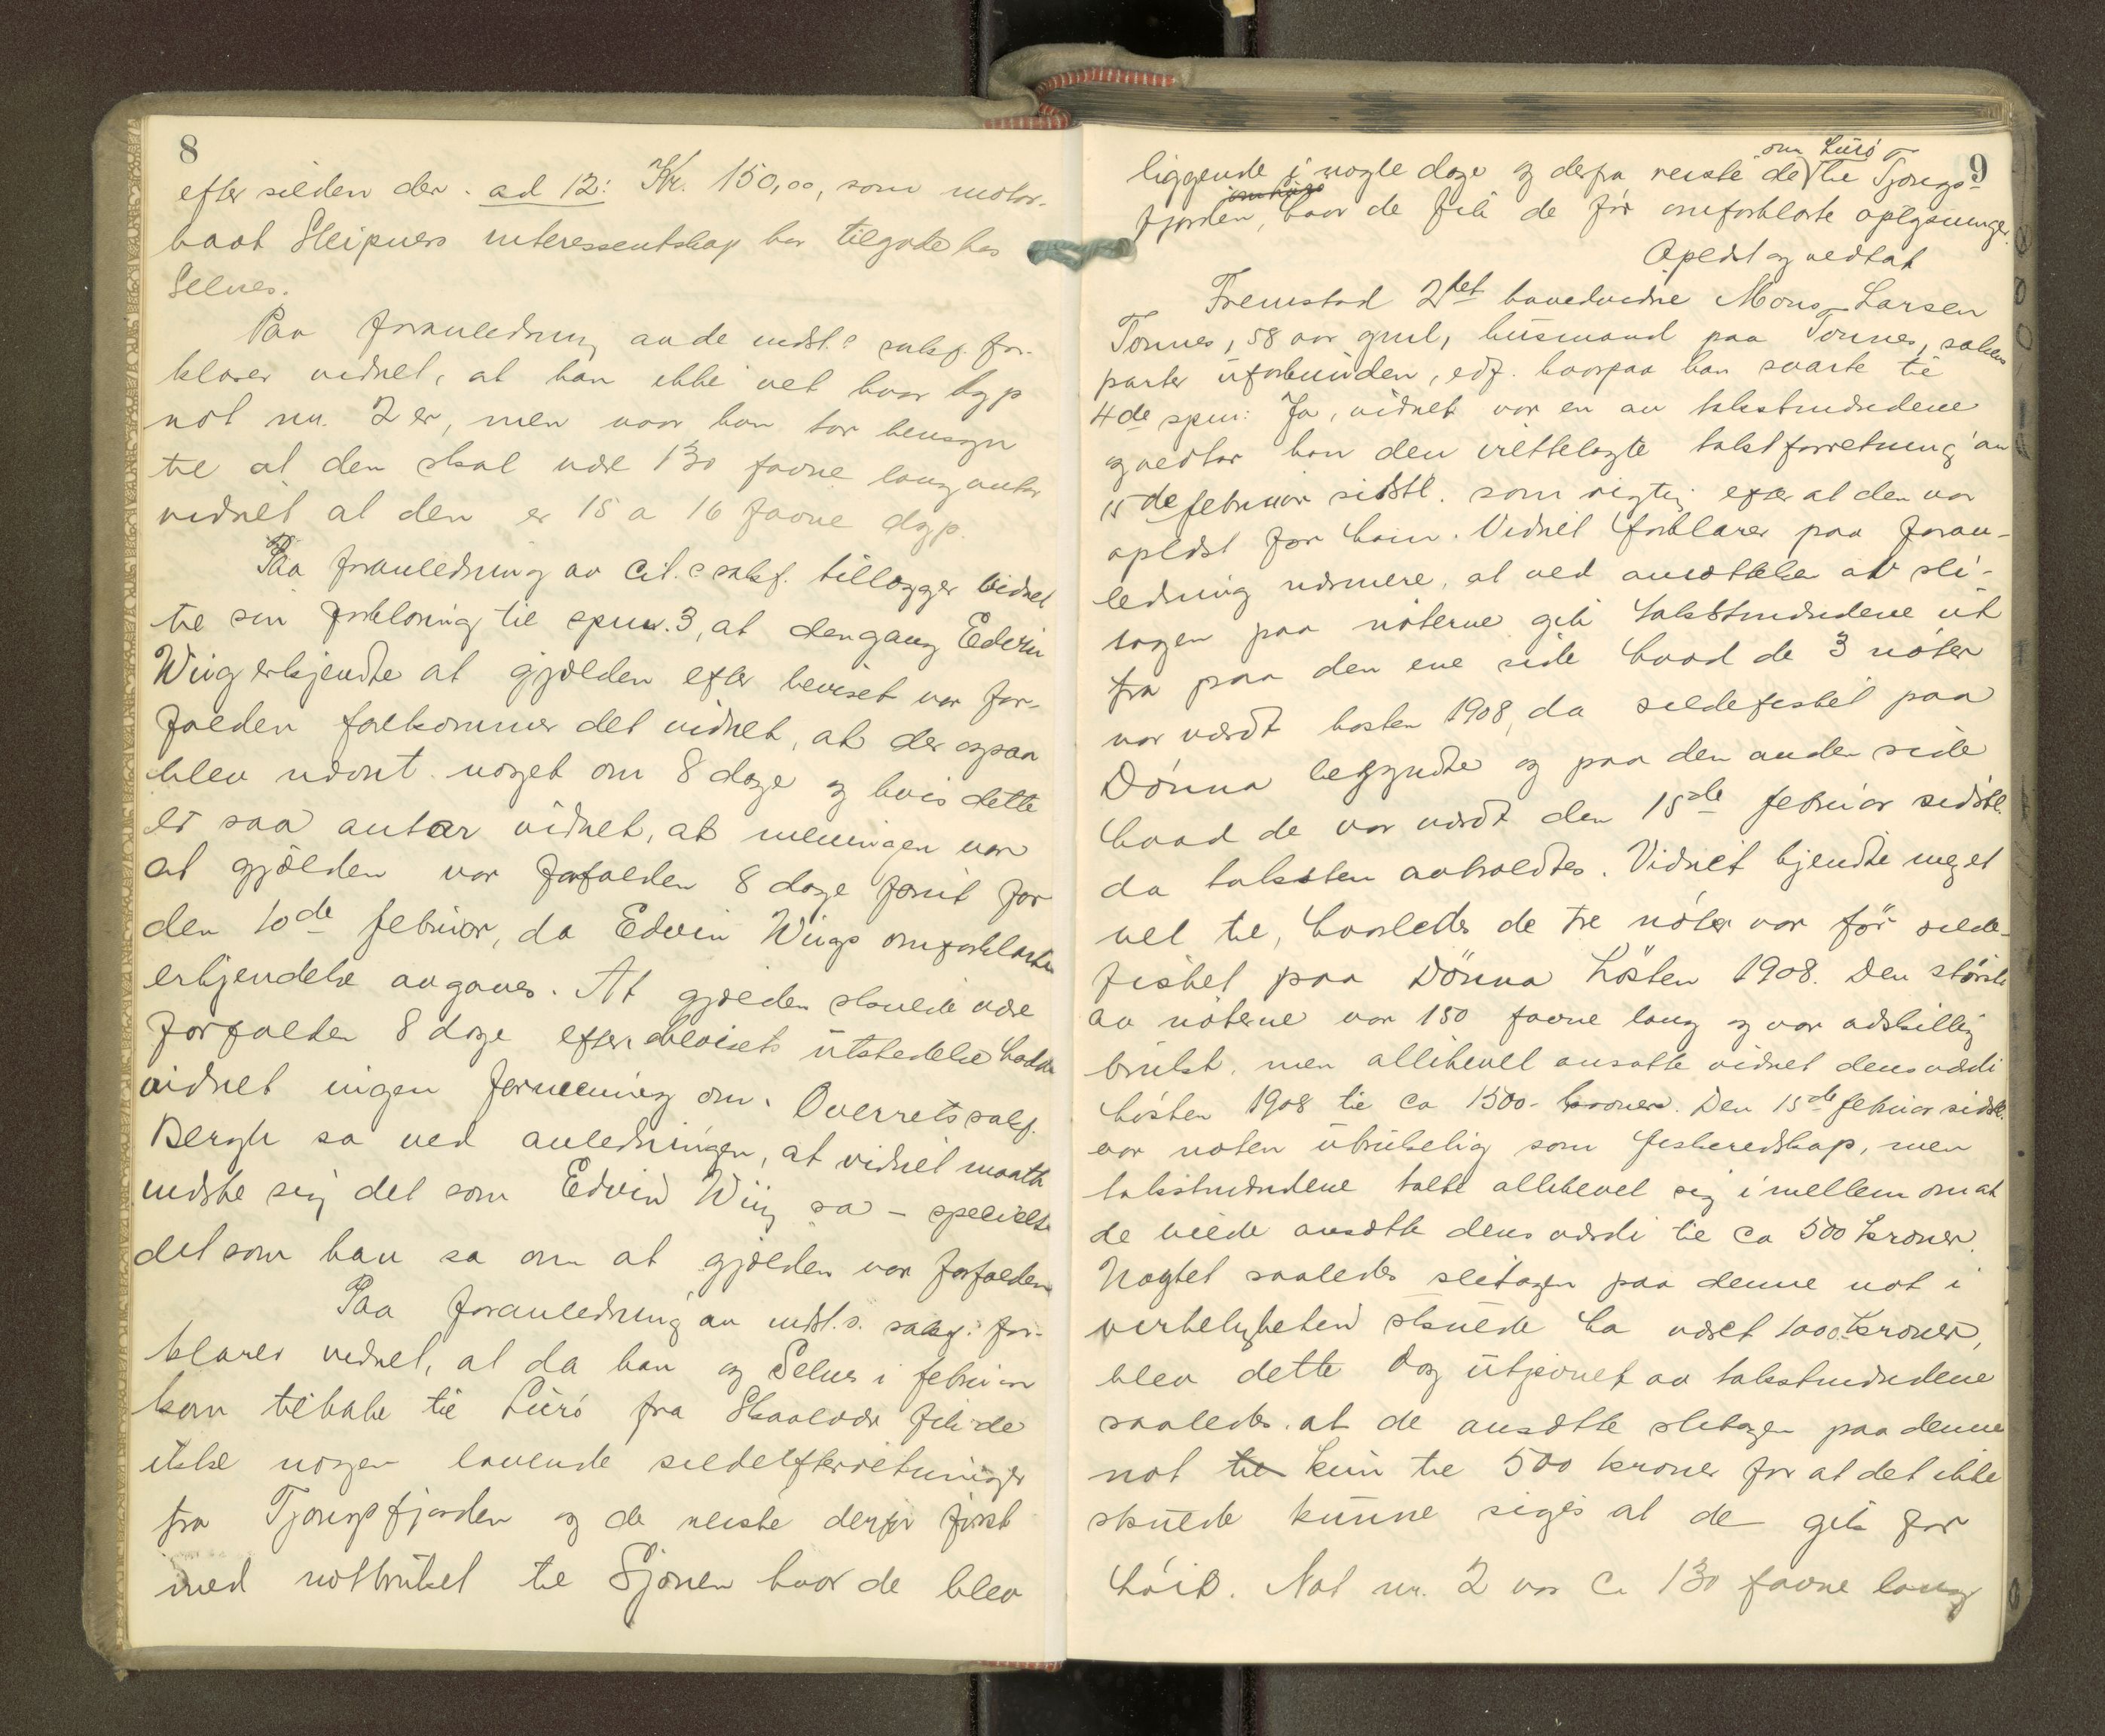 8
efter silden der. ad 12: Kr. 150,00, som motor-
baat Sleipners interessentskap har tilgode hos
Selnes.
Paa foranledning av de indst.s sakf. for-
klarer vidnet, at han ikke vet hvor dyp
not nr. 2 er, men naar han tar hensyn
til at den skal være 130 favne lang antar
vidnet at den er 15 a 16 favne dyp.
Paa foranledning av cit.s sakf. tillægger vidnet
til sin forklaring til spm. 3, at dengang Edvin
Wiig erkjendte at gjælden efter beviset var for-
falden forekommer det vidnet, at der ogsaa
blev nævnt noget om 8 dage og hvis dette
er saa antar vidnet, at meningen var
at gjælden var forfalden 8 dage forut for
den 10de februar, da Edvin Wiigs omforklarte
erkjendelse avgaves. At gjælden skulde være
forfalden 8 dage efter bevisets utstedelse hadde
vidnet ingen formening om. Overretssakf.
Bergh sa ved anledningen, at vidnet maatte
merke sig det som Edvin Wiig sa – specielt
det som han sa om at gjælden var forfalden
Paa foranledning av indst.s. sakf. for-
klarer vidnet, at da han og Selnes i februar
kom tilbake til Lurö fra Skaalvær fik de
ikke nogen lovende sildeefterretninger
fra Tjongsfjorden og de reiste derfor først
med notbruket til Sjonen hvor de blev
9
liggende i nogle dage og derfra reiste de om Lurö til Tjongs-
fjorden, om Lurö hvor de fik de før omforklarte oplysninger.
Oplæst og vedtat
Fremstod 2det hovedvidne Mons Larsen
Tonnes, 58 aar gml, husmand paa Tonnes, sakens
parter uforbunden, edf. hvorpaa han svarte til
4de spm: Ja, vidnet var en av takstmændene
og vedtar han den irettelagte takstforretning av
15de februar sidstl. som rigtig efter at den var
oplæst for ham. Vidnet forklarer paa foran-
ledning nærmere, at ved ansættelse av sli-
tagen paa nøterne gik takstmændene ut
fra paa den ene side hvad de 3 nøter
var værdt høsten 1908, da sildefisket paa
Dønna begyndte og paa den anden side
hvad de var værdt den 15de februar sidstl.
da taksten avholdtes. Vidnet kjendte meget
vel til, hvorledes de tre nøter var før silde-
fisket paa Dönna hösten 1908. Den største
av nøterne var 150 favne lang og var adskillig
brukt, men allikevel ansatte vidnet dens værdi
høsten 1908 til ca 1500- kroner. Den 15de februar sidstl.
var noten ubrukelig som fiskeredskap, men
takstmændene talte allikevel sig imellem om at
de vilde ansætte dens værdi til ca 500 kroner.
Uagtet saaledes slitagen paa denne not i
virkeligheten skulde ha været 1000 kroner,
blev dette dog utjevnet av takstmændene
saaledes at de ansatte slitagen paa denne
not til kun til 500 kroner for at det ikke
skulde kunne siges at de gik for
høit. Not nr. 2 var ca 130 favne lang